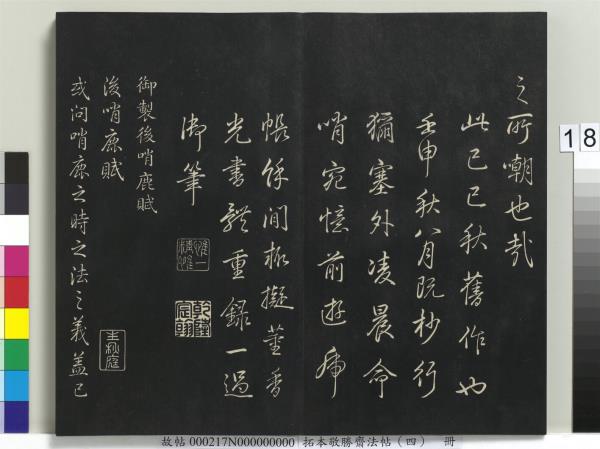 之所嘲也哉
此己巳秋舊作也
壬申秋八月既杪行
獮塞外凌晨命
哨宛憶前遊
帳餘閒擬董香
光書體重錄一過
御筆
惟精惟一
乾隆宸翰
御製後哨鹿賦
後哨鹿賦
或問哨鹿之時之法之義蓋已
生秋庭
18
故帖 000217N000000000 拓本敬勝齋法帖（四） 冊